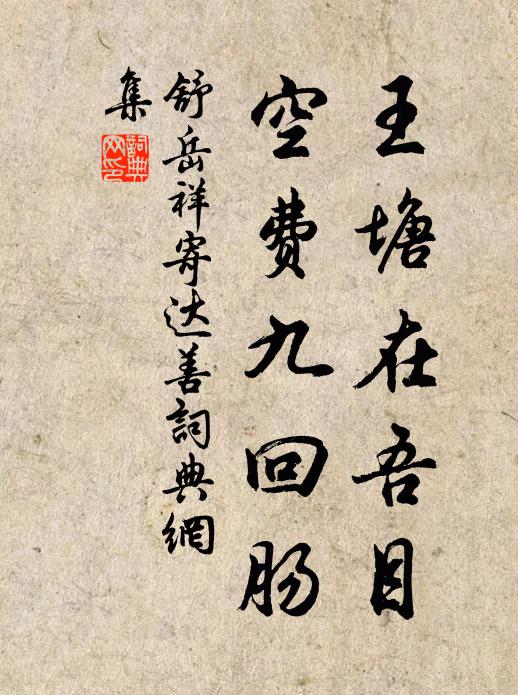 王塘在吾目
空费九回肠
舒岳祥寄达善詞典網
集
詞典
网印